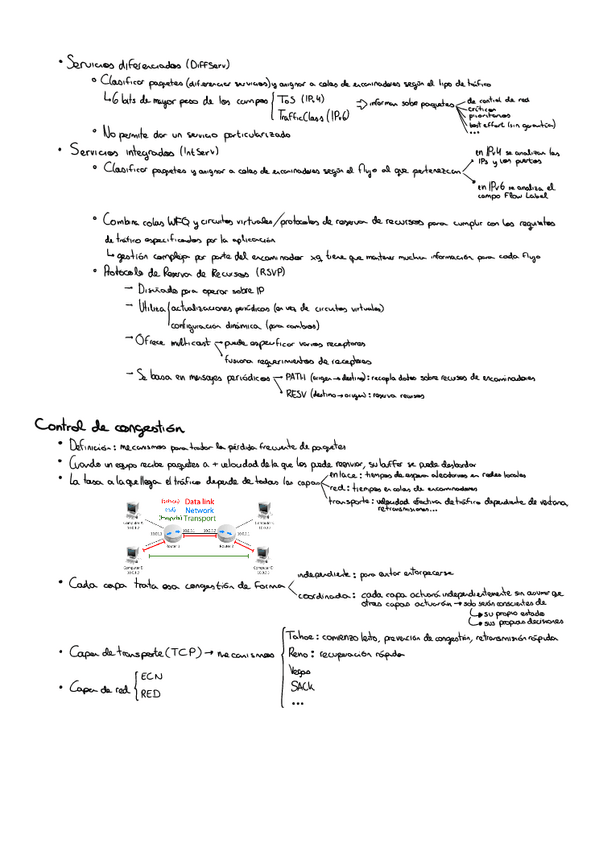 • Servicios diferenciados (DiffServ)
o Clasificar paquetes (diferenciar servicios) y asignar a colas de encaminadores según el tipo de tráfico
↳ 6 bits de mayor peso de los campos { ToS (IPv4) ⇒ informan sobre paquetes de control de red
TrafficClass (IPv6) críticos
prioritarios
best effort (sin garantía)
...
o No permite dar un servicio particularizado
• Servicios integrados (IntServ)
en IPv4 se analizan las
IPs y los puertos
o Clasificar paquetes y asignar a colas de encaminadores según el flujo al que pertenezcan
en IPv6 se analiza el
campo Flow Label
o Combina colas WFQ y circuitos virtuales/protocolos de reserva de recursos para cumplir con los requisitos
de tráfico especificados por la aplicación
↳ gestión compleja por parte del encaminador xq tiene que mantener mucha información para cada flujo
o Protocolo de Reserva de Recursos (RSVP)
— Diseñado para operar sobre IP
— Utiliza { actualizaciones periódicas (en vez de circuitos virtuales)
configuración dinámica (para cambios)
— Ofrece multicast → puede especificar varios receptores
fusiona requerimientos de receptores
— Se basa en mensajes periódicos → PATH (origen→destino): recopila datos sobre recursos de encaminadores
RESV (destino→origen): reserva recursos
Control de congestión
• Definición: mecanismos para tratar la pérdida frecuente de paquetes
• Cuando un equipo recibe paquetes a + velocidad de la que los puede reenviar, su buffer se puede desbordar
• La tasa a la que llega el tráfico depende de todas las capas enlace: tiempos de espera aleatorios en redes locales
red: tiempos en colas de encaminadores
transporte: velocidad efectiva de tráfico dependiente de ventana,
retransmisiones...
Data link
Network
Transport
Computer A
Computer C
Router 1
Router 2
Computer B
Computer D
• Cada capa trata esa congestión de forma independiente: para evitar entorpecerse
coordinada: cada capa actuará independientemente sin asumir que
otras capas actuarán → solo serán conscientes de
↳ su propio estado
↳ sus propias decisiones
• Capa de transporte (TCP) → mecanismos { Tahoe: comienzo lento, prevención de congestión, retransmisión rápida
Reno: recuperación rápida
Vegas
SACK
...
• Capa de red { ECN
RED